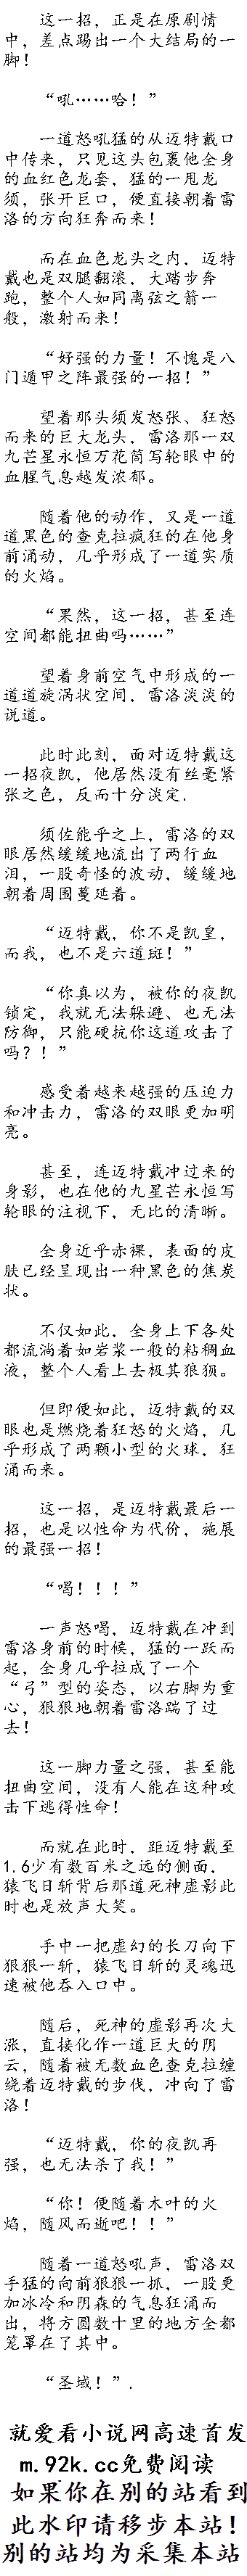 这一招，正是在原剧情
中，差点踢出一个大结局的一
脚！
“吼……哈！”
一道怒吼猛的从迈特戴口
中传来，只见这头包裹他全身
的血红色龙套，猛的一甩龙
须，张开巨口，便直接朝着雷
洛的方向狂奔而来！
而在血色龙头之内，迈特
戴也是双腿翻滚，大踏步奔
跑，整个人如同离弦之箭一
般，激射而来！
“好强的力量！不愧是八
门遁甲之阵最强的一招！”
望着那头须发怒张、狂怒
而来的巨大龙头，雷洛那一双
九芒星永恒万花筒写轮眼中的
血腥气息越发浓郁。
随着他的动作，又是一道
道黑色的查克拉疯狂的在他身
前涌动，几乎形成了一道实质
的火焰。
“果然，这一招，甚至连
空间都能扭曲吗……”
望着身前空气中形成的一
道道旋涡状空间，雷洛淡淡的
说道。
此时此刻，面对迈特戴这
一招夜凯，他居然没有丝毫紧
张之色，反而十分淡定.
须佐能乎之上，雷洛的双
眼居然缓缓地流出了两行血
泪，一股奇怪的波动，缓缓地
朝着周围蔓延着。
“迈特戴，你不是凯皇，
而我，也不是六道斑！”
“你真以为，被你的夜凯
锁定，我就无法躲避、也无法
防御，只能硬抗你这道攻击了
吗？！”
感受着越来越强的压迫力
和冲击力，雷洛的双眼更加明
亮。
甚至，连迈特戴冲过来的
身影，也在他的九星芒永恒写
轮眼的注视下，无比的清晰。
全身近乎赤裸，表面的皮
肤已经呈现出一种黑色的焦炭
状。
不仅如此，全身上下各处
都流淌着如岩浆一般的粘稠血
液，整个人看上去极其狼狈。
但即便如此，迈特戴的双
眼也是燃烧着狂怒的火焰，几
乎形成了两颗小型的火球，狂
涌而来。
这一招，是迈特戴最后一
招，也是以性命为代价，施展
的最强一招！
“喝！！！”
一声怒喝，迈特戴在冲到
雷洛身前的时候，猛的一跃而
起，全身几乎拉成了一个
“弓”型的姿态，以右脚为重
心，狠狠地朝着雷洛踹了过
去！
这一脚力量之强，甚至能
扭曲空间，没有人能在这种攻
击下逃得性命！
而就在此时，距迈特戴至
1.6少有数百米之远的侧面，
猿飞日斩背后那道死神虚影此
时也是放声大笑。
手中一把虚幻的长刀向下
狠狠一斩，猿飞日斩的灵魂迅
速被他吞入口中。
随后，死神的虚影再次大
涨，直接化作一道巨大的阴
云，随着被无数血色查克拉缠
绕着迈特戴的步伐，冲向了雷
洛！
“迈特戴，你的夜凯再
强，也无法杀了我！”
“你！便随着木叶的火
焰，随风而逝吧！！”
随着一道怒吼声，雷洛双
手猛的向前狠狠一抓，一股更
加冰冷和阴森的气息狂涌而
出，将方圆数十里的地方全都
笼罩在了其中。
“圣域！”.
就爱看小说网高速首发
m.92k.cc免费阅读
如果你在别的站看到
此水印请移步本站！
别的站均为采集本站